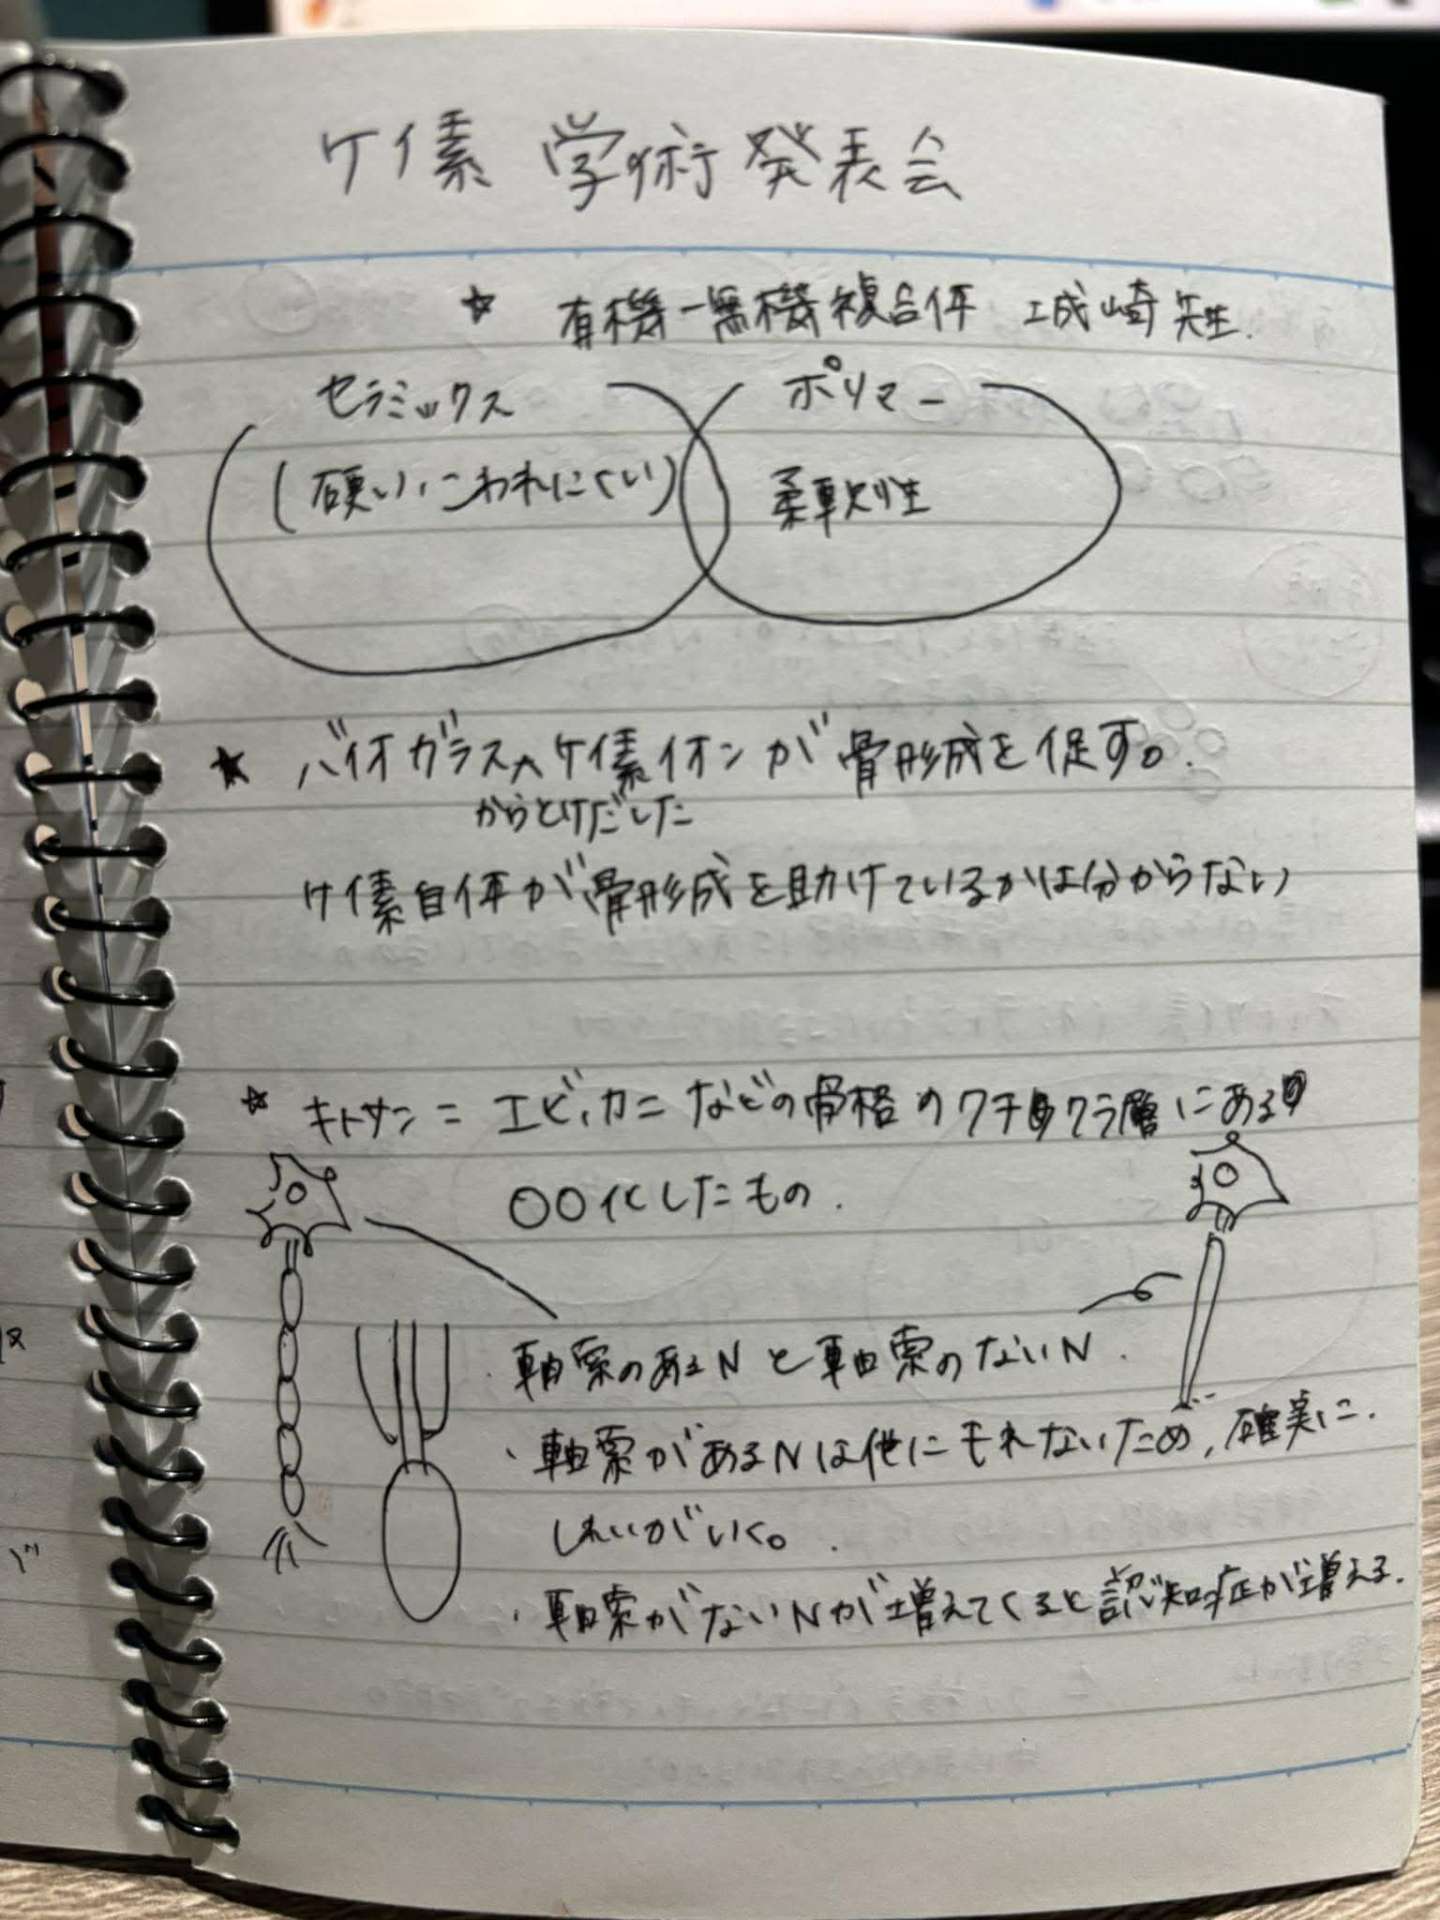 ケイ素 学術発表会
☆ 有機-無機複合体 城崎先生.
セラミックス
ポリマー
(硬い、こわれにくい)
柔軟性
★ バイオガラス^ケイ素イオンが骨形成を促す。
からとけだした
ケイ素自体が骨形成を助けているかは分からない
☆ キトサン = エビ、カニなどの骨格のクチクラ層にある
〇〇化したもの.
・軸索のあるNと軸索のないN.
・軸索があるNは他にもれないため、確実に.
しれいがいく。
・軸索がないNが増えてくると認知症が増える.